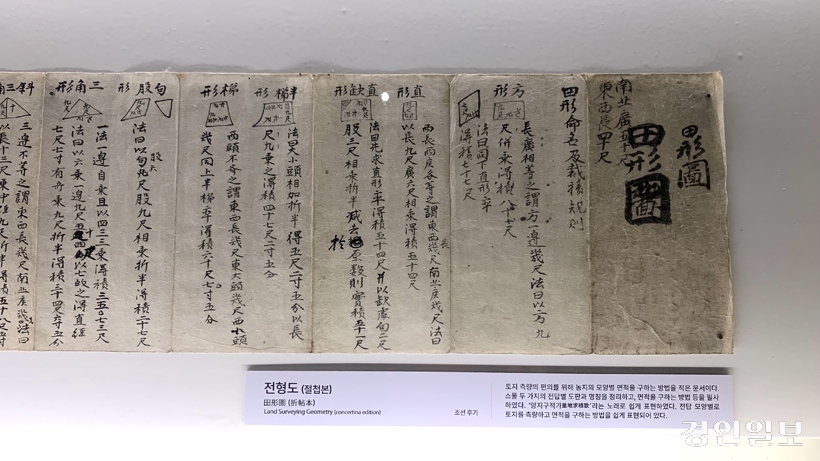 田形圖
田形圖
南北廣五十尺
東西長四十尺
田形命名及裁積規則
方形
長廣相等之謂方一邊幾尺法曰以一方九
尺併乘得積八十一尺
法曰同下直形率
得積七十七尺
直形
西長兩廣各等之謂東西長幾尺南北廣幾尺法曰
以長九尺廣六尺相乘得積五十四尺
直缺形
法曰先求直形率得積五十四尺并以缺處句二尺
股三尺相乘折半減去於原数則實積五十一尺
半梯形
法曰大小頭相加折半得五尺二寸五分以長
尺九乘之得積四十七尺二寸五分
梯形
兩頭不等之謂東西長幾尺東大頭幾尺西小頭
幾尺同上半梯率得積六十尺七寸五分
句股形
法曰以句九尺股六尺相乘折半得積二十七尺
三角形
法一邊自乘且以四三三乘得積三五〇七三尺
七尺七寸有奇乘九尺折半得積三十四尺六寸五分
斜三角
三邊不等之謂東西長幾尺南北廣幾尺法曰
전형도 (절첩본)
田形圖 (折帖本)
Land Surveying Geometry (concertina edition)
조선 후기
토지 측량의 편의를 위해 농지의 모양별 면적을 구하는 방법을 적은 문서이다.
스물 두 가지의 전답별 도판과 명칭을 정리하고, 면적을 구하는 방법 등을 필사
하였다. '양지구적가量地求積歌'라는 노래로 쉽게 표현하였다. 전답 모양별로
토지를 측량하고 면적을 구하는 방법을 쉽게 표현되어 있다.
경인일보